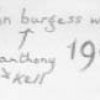 n burgess w
anthony 19
Kell